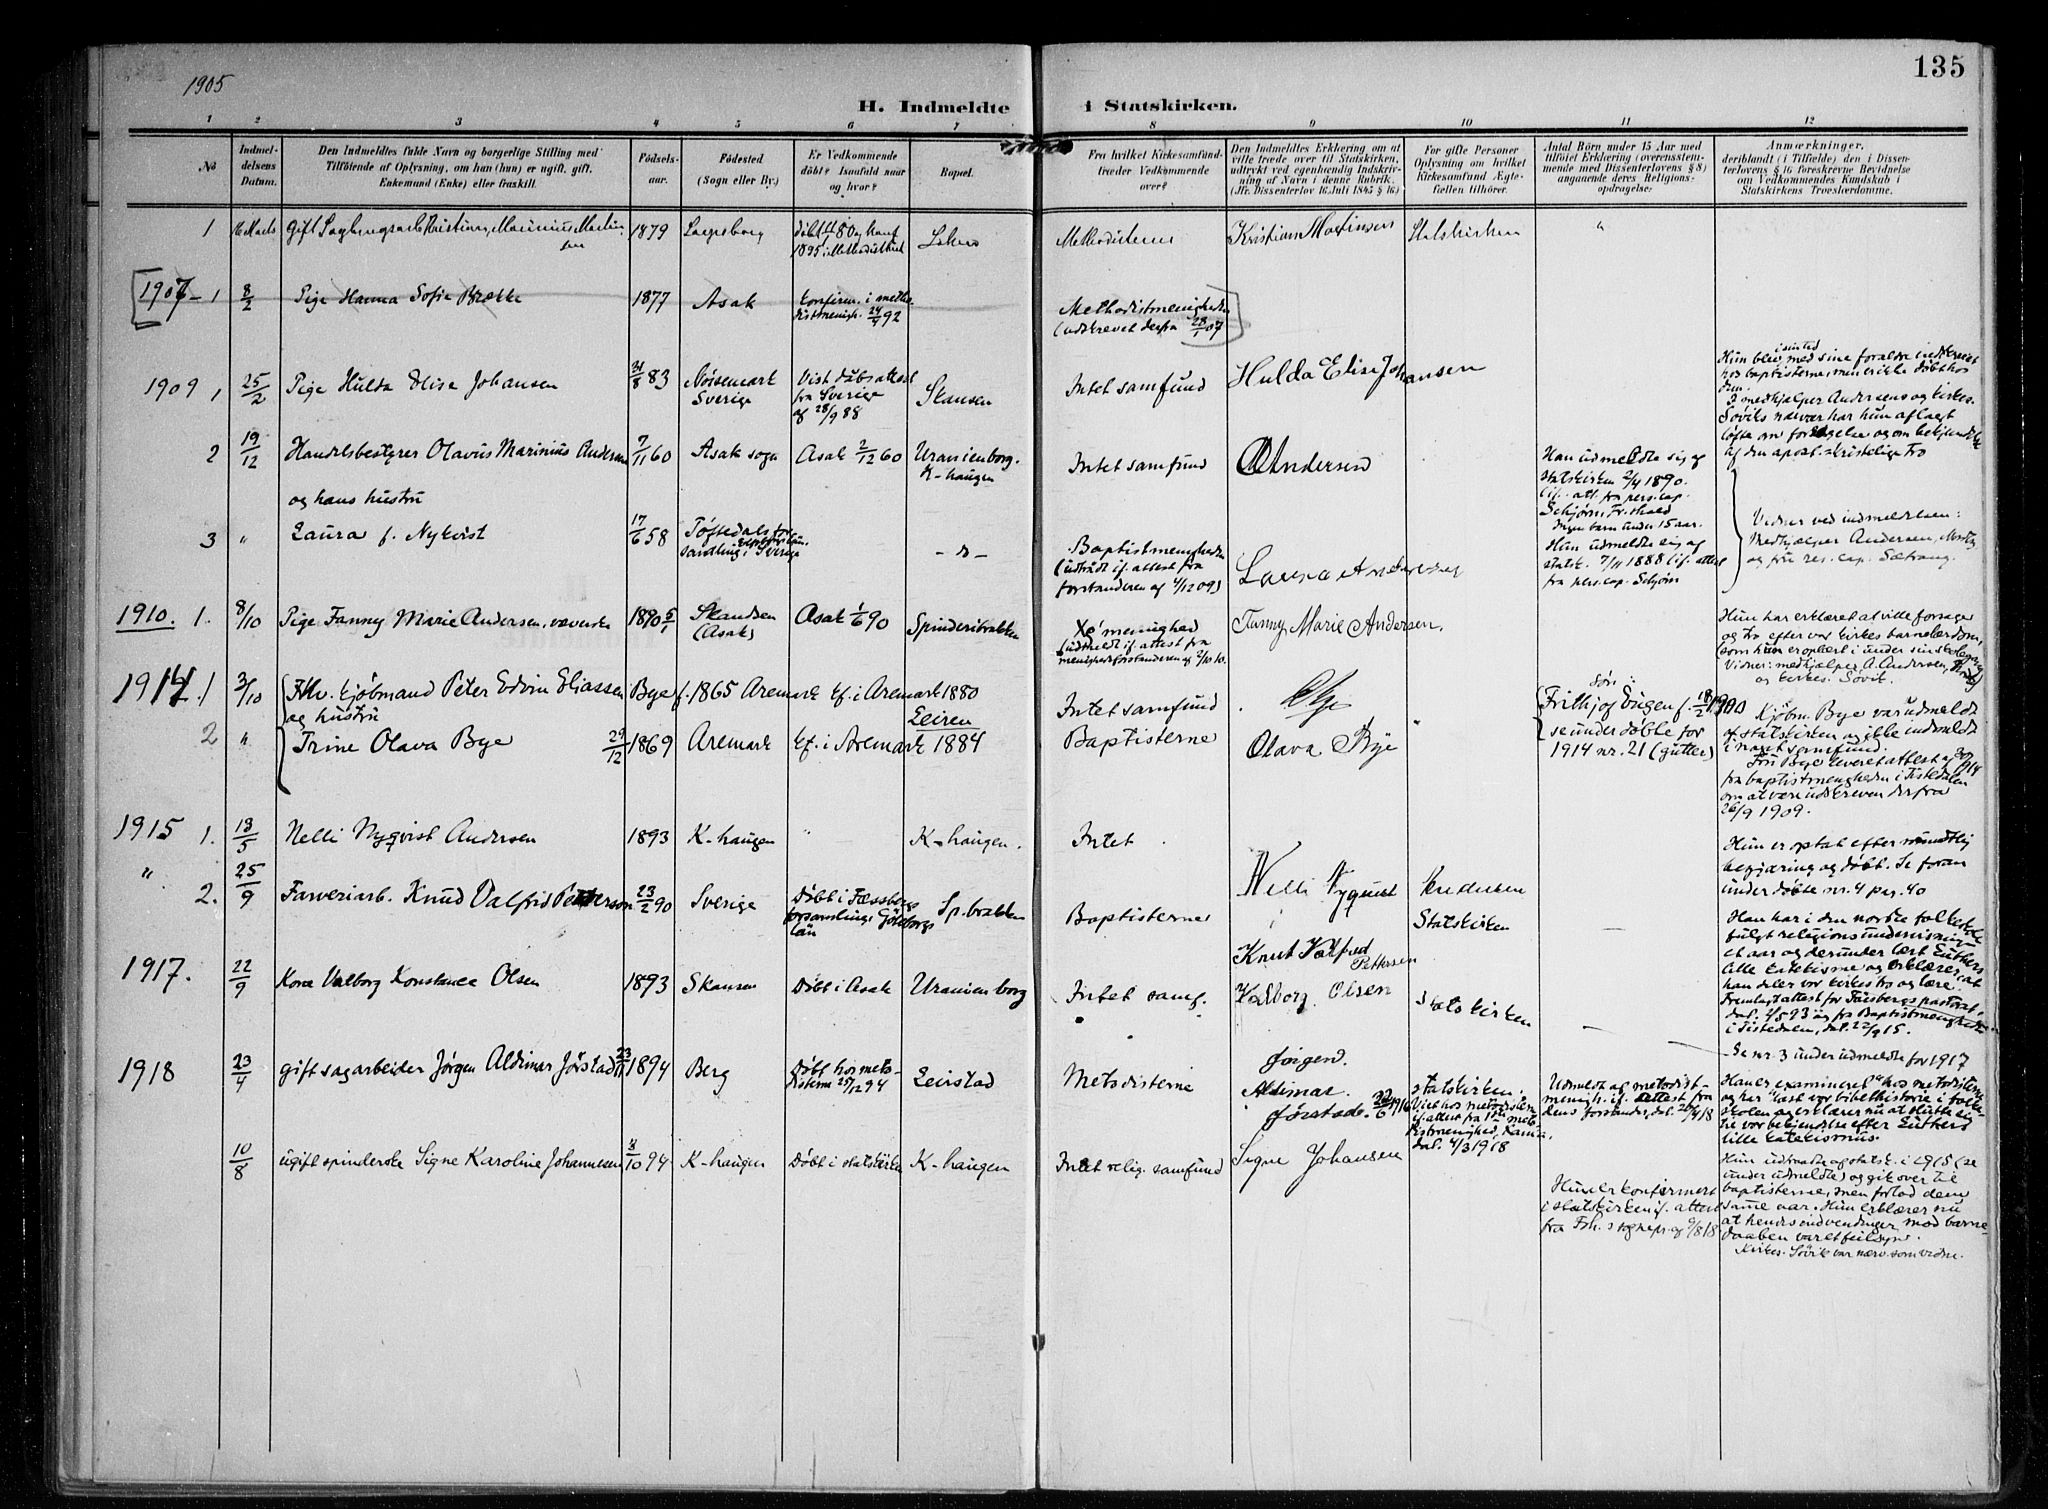 135
1905
H. Indmeldte i Statskirken.
1 2 3 4 5 6 7 8 9 10 11 12
No
Indmel-
delsens
Datum.
Den Indmeldtes fulde Navn og borgerlige Stilling med
Tilföiende af Oplysning, om han (hun) er ugift, gift,
Enkemand (Enke) eller fraskill.
Födsels-
aar.
Födested
(Sogn eller By.)
Er Vedkommende
döbt? Isaafald naar
og hvor?
Bopæl.
Fra hvilket Kirkesamfund
træder Vedkommende
over?
Den Indmeldtes Erklæring om at
ville træde over til Statskirken,
udtrykt ved egenhændig Indskriv-
ning af Navn i denne Rubrik.
(Jfr. Dissenterlov 16 Juli 1845 § 16)
For gifte Personer
Oplysning om hvilket
Kirkesamfund Ægte-
fællen tilhörer.
Antal Börn under 15 Aar med
tilföiet Erklæring (overensstem-
mende med Dissenterlovens § 8)
angaaende deres Religions-
opdragelse.
Anmærkninger,
deriblandt (i Tilfælde) den i Dissen-
terlovens § 16 foreskrevne Bevidnelse
om Vedkommendes Kundskab i
Statskirkens Troeslærdomme.
1 gift Kristian Marinius Martin
sen
1879
döbt 480 og konf
1895 i Methodistkirk
Methodisterne
Kristian Martinsen
Statskirken
"
1907 – 1 8/2 Pige Hanna Sofie Brække 1877 Asak
konfirm. i metho-
distmenigh. 24/4 92
Methodistmenigheden
(udskrevet derfra 28/1 07
1909 1 25/2 Pige Hulda Elise Johansen 31/8 83
Nösemark
Sverige
Vist döbsattest
fra Sverige
af 28/9 88
Skansen
Intet samfund
Hulda Elise Johansen
Hun blev med sine foreldre indskrevet
hos baptisterne, men er ikke döbt hos
dem.
I medhjælper Andersens og kirkes.
Söviks nærvær har hun aflagt
löfte om forsagelse og om bekjendelse
af den apost.-kristelige tro
2 19/12 Handelsbestyrer Olavus Marinius Andersen 7/11 60 Asak sogn Asak 2/12 60
Uranienborg.
K-haugen
Intet samfund
OAndersen
Han udmeldte sig af
statskirken 2/4 1890.
if. att. fra pers. cap.
Schjörn, Fr.shald
Ingen barn under 15 aar.
og hans hustru
3 " Laura f. Nykvist 17/6 58
Töftedals for-
samling i Sverige
Baptistmenigheden
(udtrådt if. attest fra
forstanderen af 4/12 09)
Laura Andersen
Hun udmeldte sig af
statsk. 7/11 1888 if. attest
fra pers. cap. Schjörn
Vidner ved indmeldelsen:
Medhjælper Andersen,
og fru res. cap. Sætrang.
1910. 1. 8/10 Pige Fanny Marie Andersen, væverske 1890 5/1
Skandsen
(Asak)
Asak 1/6 90
Spinderibrakken
menighed
(udmeldt if. attest fra
menighedsforstanderen af 2/10 10.
Fanny Marie Andersen.
Hun har erklæret at ville forsage
og tro efter vor kirkes barnelærdom,
(som hun er oplært i under sin skolegang)
Vidner: medhjælper A. Andersen,
og kirkes. Sövik.
1914. 1 3/10 Fhv. kjöbmand Peter Edvin Eliassen Bye f. 1865 Aremark kf. i Aremark 1880
og hustru
Leiren
Intet samfund
Bye
sön:
Frithjof Eugen f. 18/2 1900
se under döbte for
1914 nr. 21 (gutter)
2 " Trine Olava Bye 29/12 1869 Aremark kf. i Aremark 1884
Baptisterne
Olava Bye
Kjöbm. Bye var udmeldt
af statskirken og ikke indmeldt
i noget samfund.
Fru Bye leveret attest af
fra baptistmenigheden i Tistedalen
om at være udskreven derfra
26/9 1909.
1915 1. 13/5 Nelli Nyqvist Andersen 1893 K-haugen " K-haugen.
Intet
Nelli Nyquist Andersen
Hun er optat efter mundtlig
begjæring og döbt. Se foran
under döbte nr. 4 pag. 40
" 2. 25/9 Farveriarb. Knud Valfrid Petterson 23/2 90 Sverige
Döbt i Fæssbergs
forsamling, Göteborgs
län
Sp.brakken
Baptisterne
Knut Valfred
Pettersen
Statskirken
—
Han har i den norske folkeskole
fulgt religionsundervisning
et aar og derunder lært Luthers
lille katekisme og erklærer, at
han deler vor kirkes tro og lære.
Fremlagt attest for Fässbergs pastorat,
dat. 4/5 93 og fra Baptistmenigheden
i Tistedalen, dat. 22/9 15.
1917. 22/9 Kora Valborg Konstance Olsen 1893 Skansen Döbt i Asak Uranienborg
Intet samf.
Valborg Olsen
statskirken
—
Se nr. 3 under udmeldte for 1917
1918 23/4 gift sagarbeider Jörgen Aldimar Jörstad 23/11 1894 Berg
Döbt hos meto-
disterne 25/12 94
Leirstad
Metodisterne
Jörgen
Aldimar
Jörstad.
statskirken,
Viet hos metodisterne 22/6 1916
if. attest fra 1ste meto-
distmenighed,
dat. 4/3 1918
Udmeldt af metodist-
menigh. if. attest fra
dens forstander, dat. 20/4 18
Han er examineret hos metodisterne
og har læst vor bibelhistorie i folke-
skolen og erklærer nu at slutte sig
til vor bekjendelse efter Luthers
lille katekismus.
10/8 ugift spinderske Signe Karoline Johannesen 8/10 94 K-haugen Döbt i statskirken K-haugen
Intet relig. samfund
Signe Johansen
Hun er konfirmert
i statskirken if. attest
fra Frh. sognepr. af 9/8 18
Hun udtraadte af statsk. i 1915 (se
under udmeldte) og gik over til
baptisterne, men forlod dem
samme aar. Hun erklærer nu
at hendes indvendinger mod barne-
daaben var et feilsyn.
Kirkes. Sövik var nærv. som vidne.